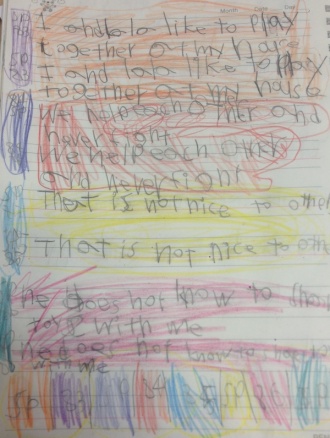 I and lala like to play
together at my house
I and lala like to play
together at my house
We help each other and
never fight
We help each other
and never fight
That is not nice to other
That is not nice to other
he does not know to share
toys with me
he does not know to share toy
with me